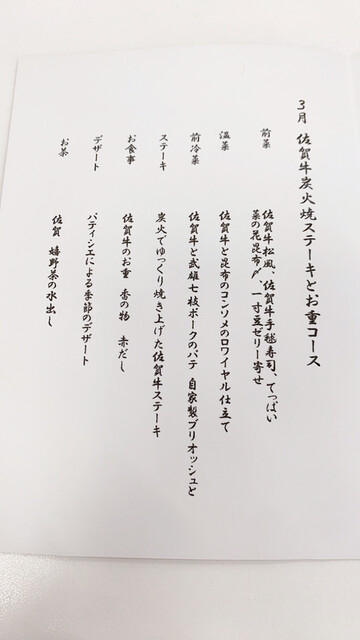 3月 佐賀牛炭火焼ステーキとお重コース
前菜 佐賀牛松風、佐賀牛手毬寿司、てっぱい
菜の花昆布〆、一寸豆ゼリー寄せ
温菜 佐賀牛と昆布のコンソメのロワイヤル仕立て
前冷菜 佐賀牛と武雄七枝ポークのパテ 自家製ブリオッシュと
ステーキ 炭火でゆっくり焼き上げた佐賀牛ステーキ
お食事 佐賀牛のお重 香の物 赤だし
デザート パティシエによる季節のデザート
お茶 佐賀 嬉野茶の水出し